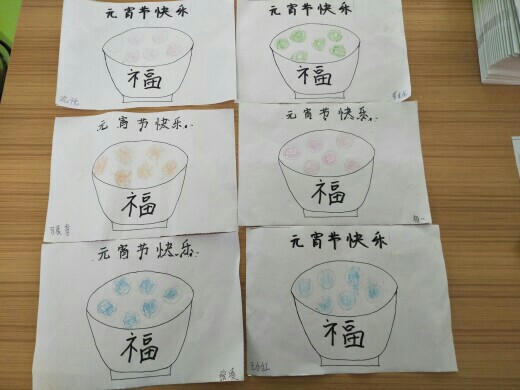 元宵节快乐
福
元宵节快乐
福
元宵节快乐
福
元宵节快乐
福
元宵节快乐
福
元宵节快乐
福